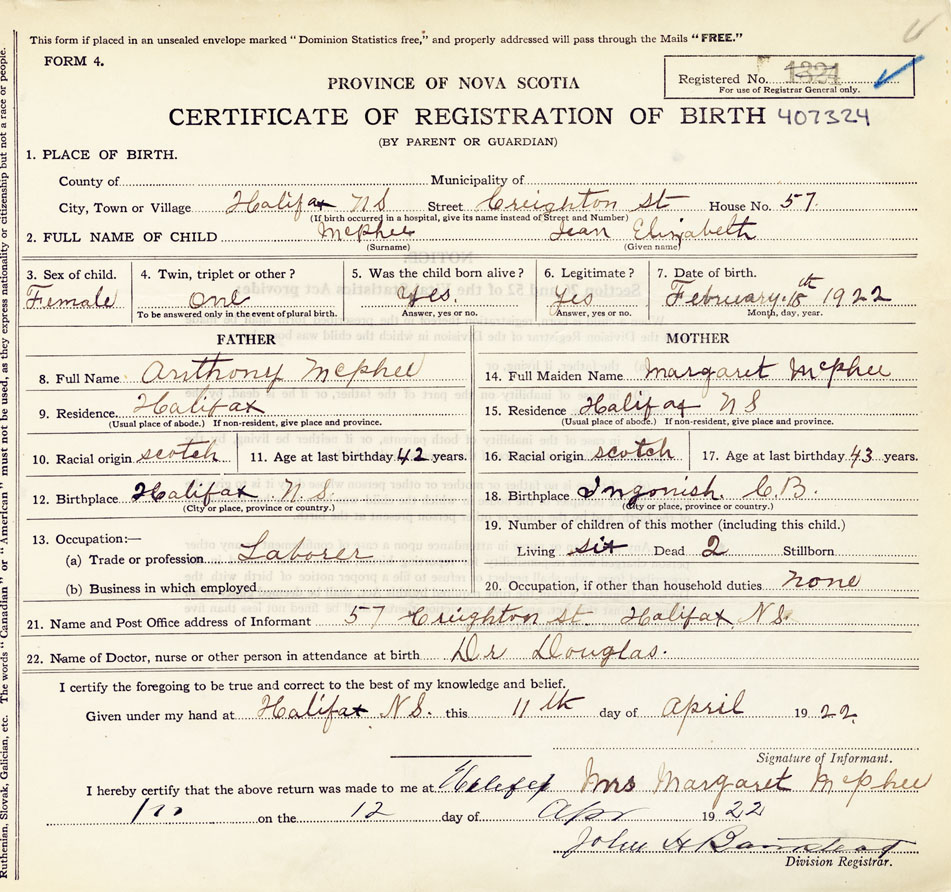 This form if placed in an unsealed envelope marked "Dominion Statistics free," and properly addressed will pass through the Mails "FREE."
FORM 4.
PROVINCE OF NOVA SCOTIA
Registered No. 1321
For use of Registrar General only.
CERTIFICATE OF REGISTRATION OF BIRTH 407324
(BY PARENT OR GUARDIAN)
1. PLACE OF BIRTH.
County of Municipality of
City, Town or Village Halifax NS Street Creighton St House No. 57.
(If birth occurred in a hospital, give its name instead of Street and Number)
2. FULL NAME OF CHILD McPhee Jean Elizabeth
(Surname) (Given name)
3. Sex of child. 4. Twin, triplet or other? 5. Was the child born alive? 6. Legitimate? 7. Date of birth.
Female One Yes. Yes February 18th 1922
To be answered only in the event of plural birth. Answer, yes or no. Answer, yes or no. Month, day, year.
FATHER MOTHER
8. Full Name Anthony McPhee 14. Full Maiden Name Margaret McPhee
9. Residence Halifax 15. Residence Halifax NS
(Usual place of abode.) If non-resident, give place and province. (Usual place of abode.) If non-resident, give place and province.
10. Racial origin scotch 11. Age at last birthday 42 years. 16. Racial origin scotch 17. Age at last birthday 43 years.
12. Birthplace Halifax N.S. 18. Birthplace Ingonish. C.B.
(City or place, province or country.) (City or place, province or country.)
13. Occupation:— 19. Number of children of this mother (including this child.)
(a) Trade or profession Laborer Living six Dead 2 Stillborn
(b) Business in which employed 20. Occupation, if other than household duties none
21. Name and Post Office address of Informant 57 Creighton St. Halifax NS.
22. Name of Doctor, nurse or other person in attendance at birth Dr Douglas.
I certify the foregoing to be true and correct to the best of my knowledge and belief.
Given under my hand at Halifax N.S. this 11th day of April 1922.
Signature of Informant.
I hereby certify that the above return was made to me at Halifax Mrs Margaret McPhee
on the 12 day of Apr 1922
John H
Division Registrar.
Ruthenian, Slovak, Galician, etc. The words "Canadian" or "American" must not be used, as they express nationality or citizenship but not a race or people.